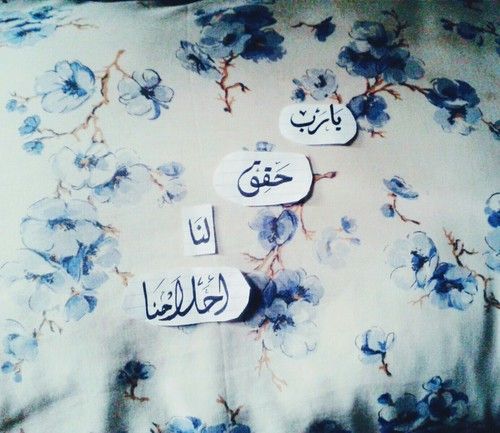 يَارَب
حَقِق
لنا
احلامنا